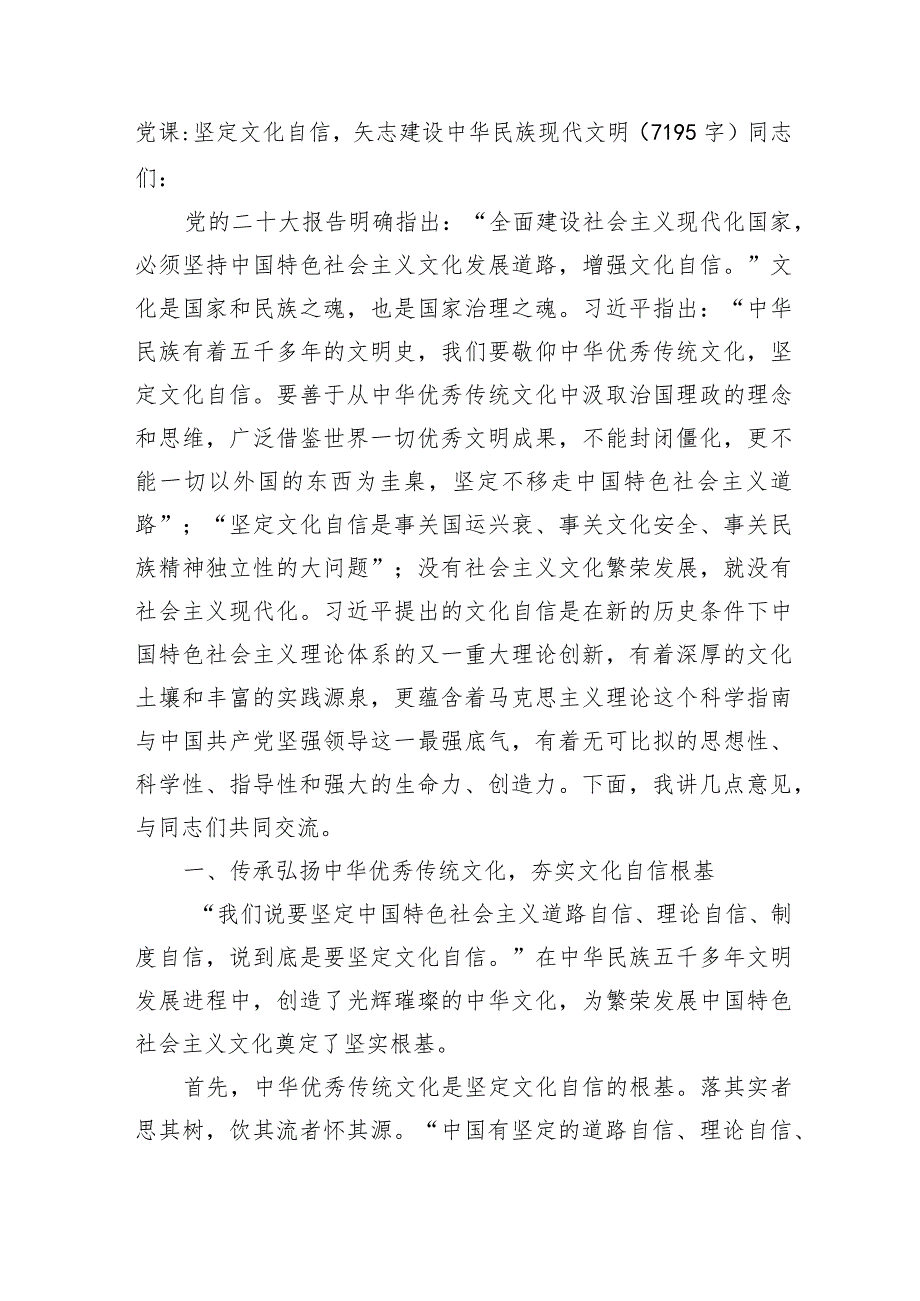 党课:坚定文化自信，矢志建设中华民族现代文明（7195字）同志
们：
党的二十大报告明确指出：“全面建设社会主义现代化国家，
必须坚持中国特色社会主义文化发展道路，增强文化自信。”文
化是国家和民族之魂，也是国家治理之魂。习近平指出：“中华
民族有着五千多年的文明史，我们要敬仰中华优秀传统文化，坚
定文化自信。要善于从中华优秀传统文化中汲取治国理政的理念
和思维，广泛借鉴世界一切优秀文明成果，不能封闭僵化，更不
能一切以外国的东西为圭臬，坚定不移走中国特色社会主义道
路”；“坚定文化自信是事关国运兴衰、事关文化安全、事关民
族精神独立性的大问题”；没有社会主义文化繁荣发展，就没有
社会主义现代化。习近平提出的文化自信是在新的历史条件下中
国特色社会主义理论体系的又一重大理论创新，有着深厚的文化
土壤和丰富的实践源泉，更蕴含着马克思主义理论这个科学指南
与中国共产党坚强领导这一最强底气，有着无可比拟的思想性、
科学性、指导性和强大的生命力、创造力。下面，我讲几点意见，
与同志们共同交流。
一、传承弘扬中华优秀传统文化，夯实文化自信根基
“我们说要坚定中国特色社会主义道路自信、理论自信、制
度自信，说到底是要坚定文化自信。”在中华民族五千多年文明
发展进程中，创造了光辉璀璨的中华文化，为繁荣发展中国特色
社会主义文化奠定了坚实根基。
首先，中华优秀传统文化是坚定文化自信的根基。落其实者
思其树，饮其流者怀其源。“中国有坚定的道路自信、理论自信、